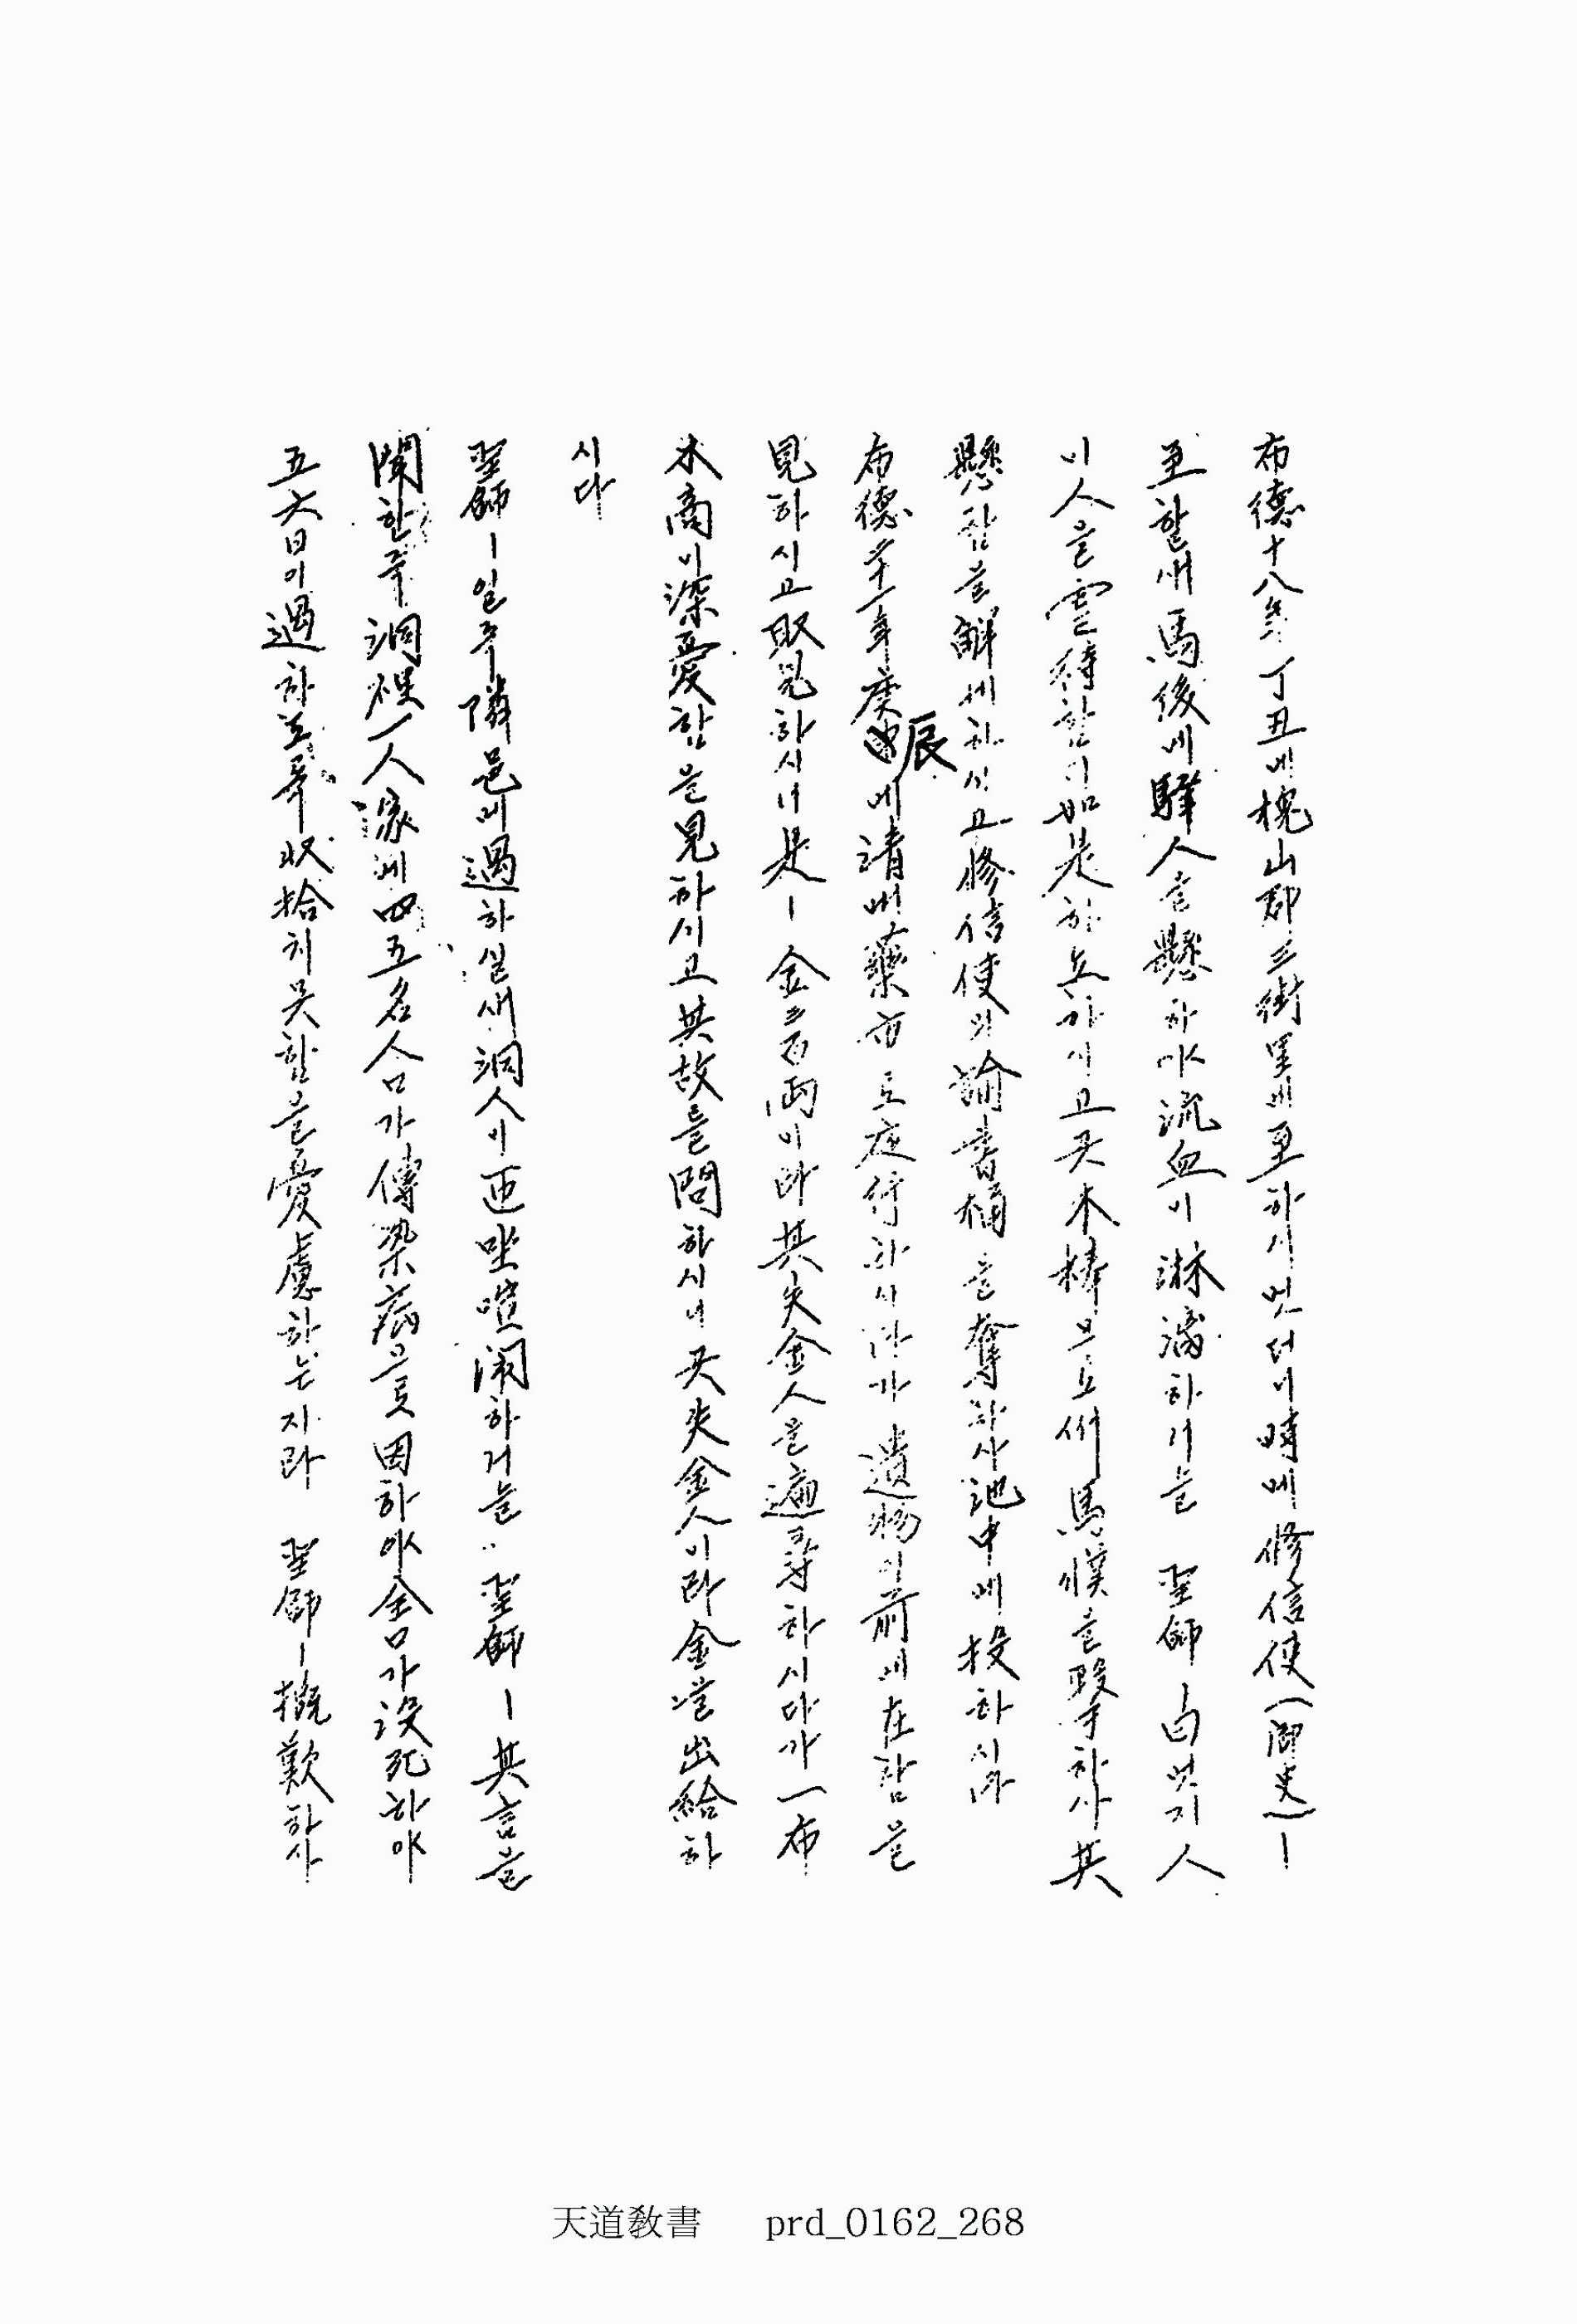 布德十八年丁丑에 槐山郡 三街里에 至하시엿더니 時에 修信使(御史)ㅣ
至할새 馬後에 驛人을 懸하야 流血이 淋漓하거늘 聖師ㅣ 曰 엇지 人
이 人을 虐待함이 如是하뇨 하시고 곳 木棒으로 써 馬僕을 擊하사 其
懸함을 解케하시고 修信使의 諭書桶을 奪하사 池中에 投하시다
布德二十一年庚辰에 淸州 藥市로 庭行하시다가 遺物이 前에 在함을
見하시고 取見하시니 是ㅣ 金三百兩이라 其失金人을 遍尋하시다가 一布
木商이 深憂함을 見하시고 其故를 問하시니 곳 失金人이라 金을 出給하
시다
聖師ㅣ 일즉 隣邑에 過하실새 洞人이 匝坐喧鬧하거늘 聖師ㅣ 其言을
聞한즉 洞裡一人家에 四五名人口가 傳染病으로 因하야 全口가 沒死하야
五六日이 過하도록 收拾치 못함을 憂慮하는지라 聖師ㅣ 慨歎하사
天道敎書 prd_0162_268